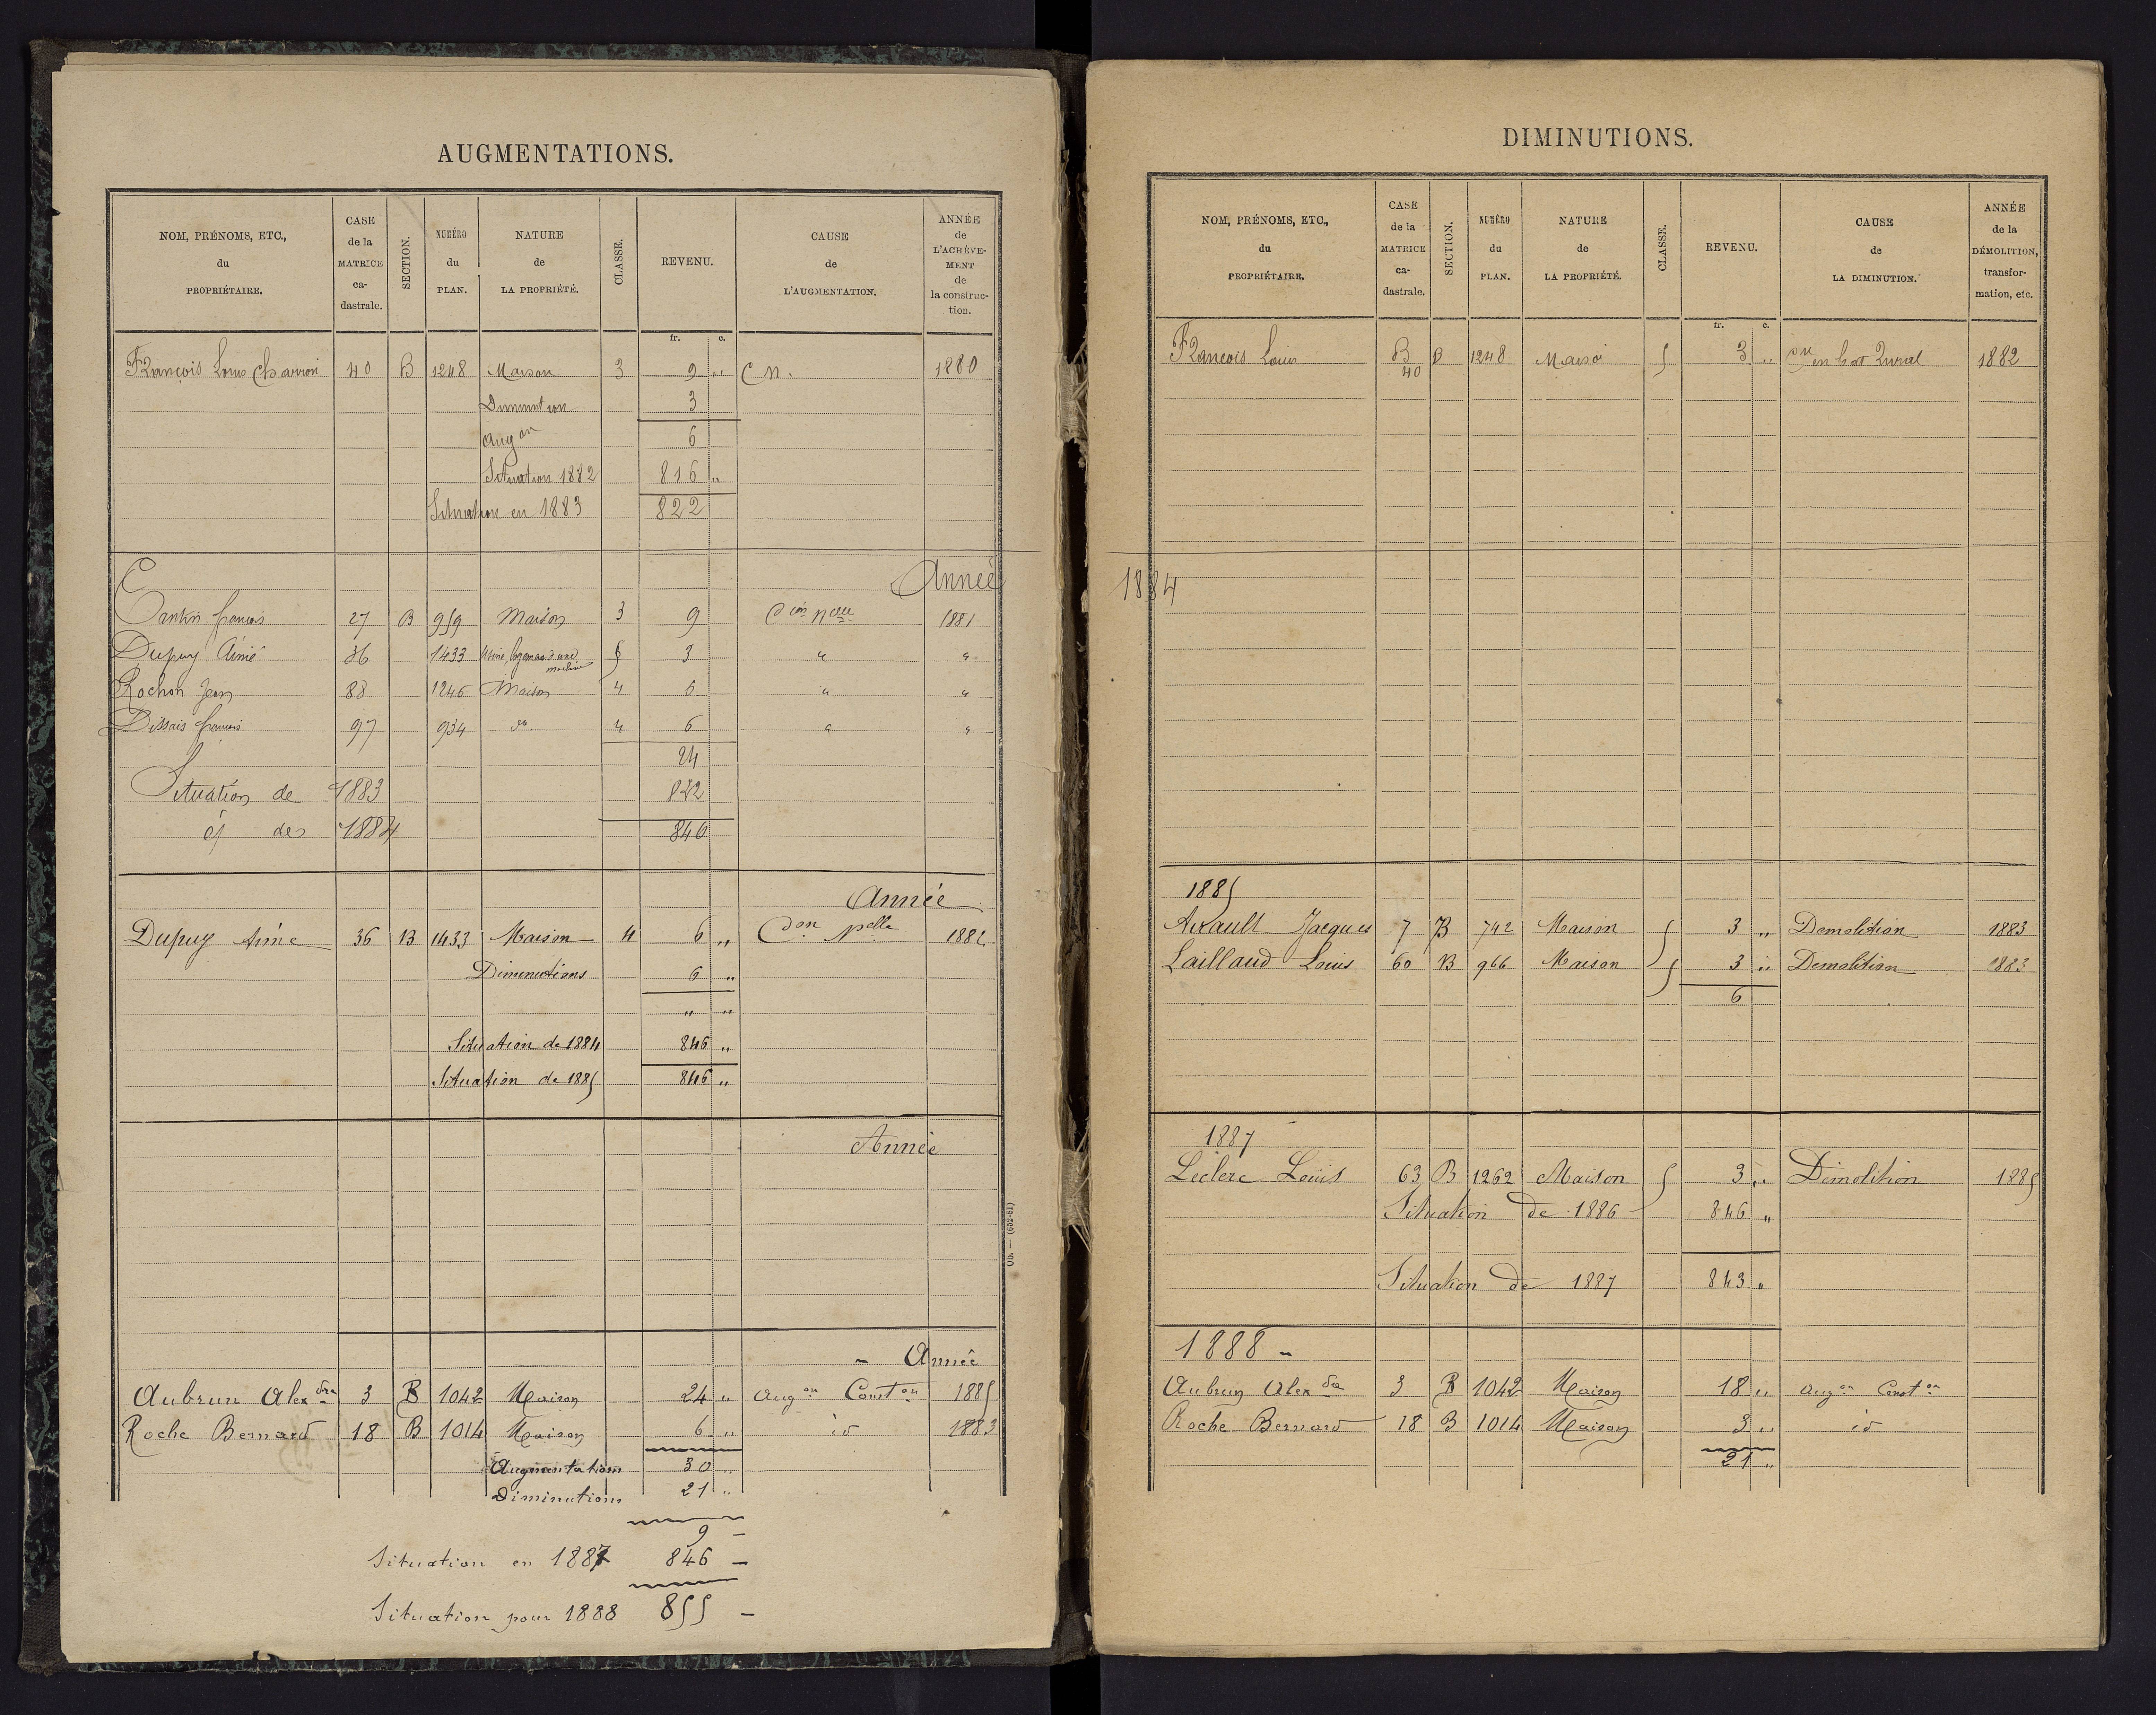 AUGMENTATIONS.
NOM, PRÉNOMS, ETC., du PROPRIÉTAIRE. CASE de la MATRICE ca- dastrale. SECTION. NUMÉRO du PLAN. NATURE de LA PROPRIÉTÉ. CLASSE. REVENU. CAUSE de L'AUGMENTATION. ANNÉE de L'ACHÈVE- MENT de la construc- tion.
fr. c.
François Louis Charron 40 B 1248 Maison 3 9 " C n. 1880
Diminution 3
Aug on 6
Situation 1882 816 "
Situation en 1883 822
Année
Cantin françois 27 B 959 Maison 3 9 C on nelle 1881
Dupuy Aimé 36 1433 Usine, logement d'une machine 5 3 " "
Rochon Jean 88 1246 Maison 4 6 " "
Dissais françois 97 934 do 4 6 " "
24
Situation de 1883 822
de 1884 846
Année
Dupuy Aimé 36 B 1433 Maison 4 6 " C on nelle 1882
Diminutions 6 "
" "
Situation de 1884 846 "
Situation de 1885 846 "
Année
Année
Aubrun Alex dre 3 B 1042 Maison 24 " Aug on Const on 1885
Roche Bernard 18 B 1014 Maison 6 " id 1883
Augmentations 30 "
Diminutions 21 "
9 —
Situation en 1887 846 —
Situation pour 1888 855 —
Ob. — (652-81)
DIMINUTIONS.
NOM, PRÉNOMS, ETC., du PROPRIÉTAIRE. CASE de la MATRICE ca- dastrale. SECTION. NUMÉRO du PLAN. NATURE de LA PROPRIÉTÉ. CLASSE. REVENU. CAUSE de LA DIMINUTION. ANNÉE de la DÉMOLITION, transfor- mation, etc.
fr. c.
François Louis B 40 B 1248 Maison 5 3 " en bat Rural 1882
1884
1885
Airault Jacques 7 B 742 Maison 5 3 " Demolition 1883
Laillaud Louis 60 B 966 Maison 5 3 " Demolition 1883
6
1887
Leclerc Louis 63 B 1262 Maison 5 3 " Dimolition 1885
Situation de 1886 846 "
Situation de 1887 843 "
1888 -
Aubrun Alex dre 3 B 1042 Maison 18 " Aug on Const on
Roche Bernard 18 B 1014 Maison 3 " id
21 "